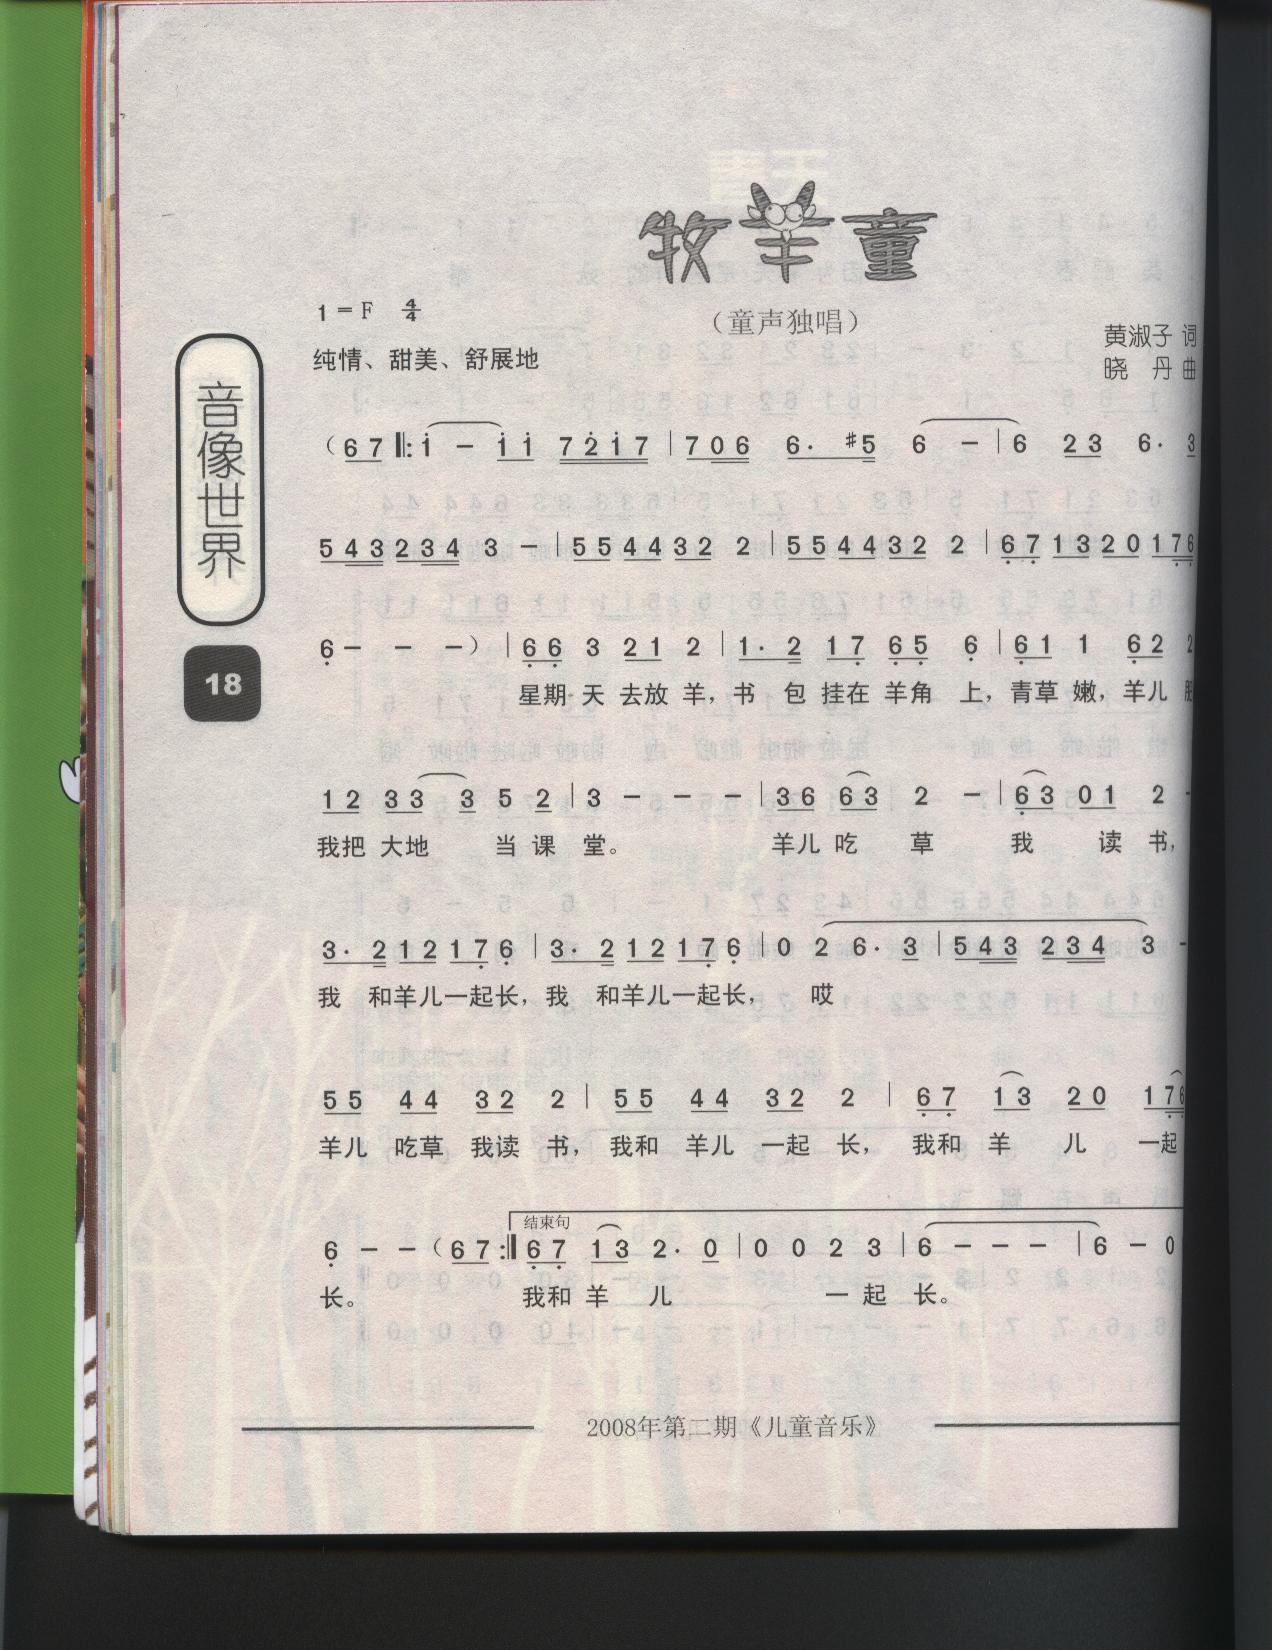 牧羊童
(童声独唱)
1=F 4/4
纯情、甜美、舒展地
黄淑子 词
晓 丹 曲
音像世界
18
(6 7 ‖: i - i i 7 2 i 7 | 7 0 6 6· #5 6 - | 6 2 3 6· 3
5 4 3 2 3 4 3 - | 5 5 4 4 3 2 2 | 5 5 4 4 3 2 2 | 6 7 1 3 2 0 1 7 6
6 - - -) | 6 6 3 2 1 2 | 1· 2 1 7 6 5 6 | 6 1 1 6 2 2
星期 天 去放 羊,书 包 挂在 羊角 上,青草 嫩,羊儿
1 2 3 3 3 5 2 | 3 - - - | 3 6 6 3 2 - | 6 3 0 1 2 -
我把 大地 当 课 堂。 羊儿 吃 草 我 读 书,
3· 2 1 2 1 7 6 | 3· 2 1 2 1 7 6 | 0 2 6· 3 | 5 4 3 2 3 4 3 -
我 和羊儿一起长,我 和羊儿一起长, 哎
5 5 4 4 3 2 2 | 5 5 4 4 3 2 2 | 6 7 1 3 2 0 1 7 6
羊儿 吃草 我读 书,我和 羊儿 一起 长, 我和 羊 儿 一起
结束句
6 - - (6 7 :‖ 6 7 1 3 2· 0 | 0 0 2 3 | 6 - - - | 6 - 0
长。 我和 羊 儿 一 起 长。
2008年第二期《儿童音乐》